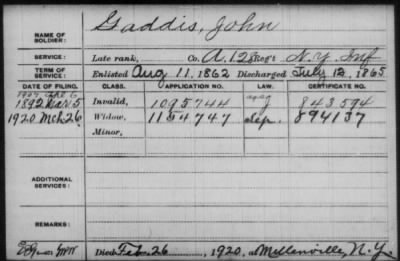 Gaddis, John
NAME OF SOLDIER:
SERVICE: Late rank, Co. A, 128 Reg't N.Y. Inf
TERM OF SERVICE: Enlisted Aug 11, 1862 Discharged July 12, 1865
DATE OF FILING. CLASS. APPLICATION NO. LAW. CERTIFICATE NO.
1892 Mar 5 Invalid, 1095744 843594
1920 Mch 26 Widow, 1154747 Sep. 894137
Minor,
ADDITIONAL SERVICES:
REMARKS:
Died Feb. 26, 1920, at Mellenville, N.Y.